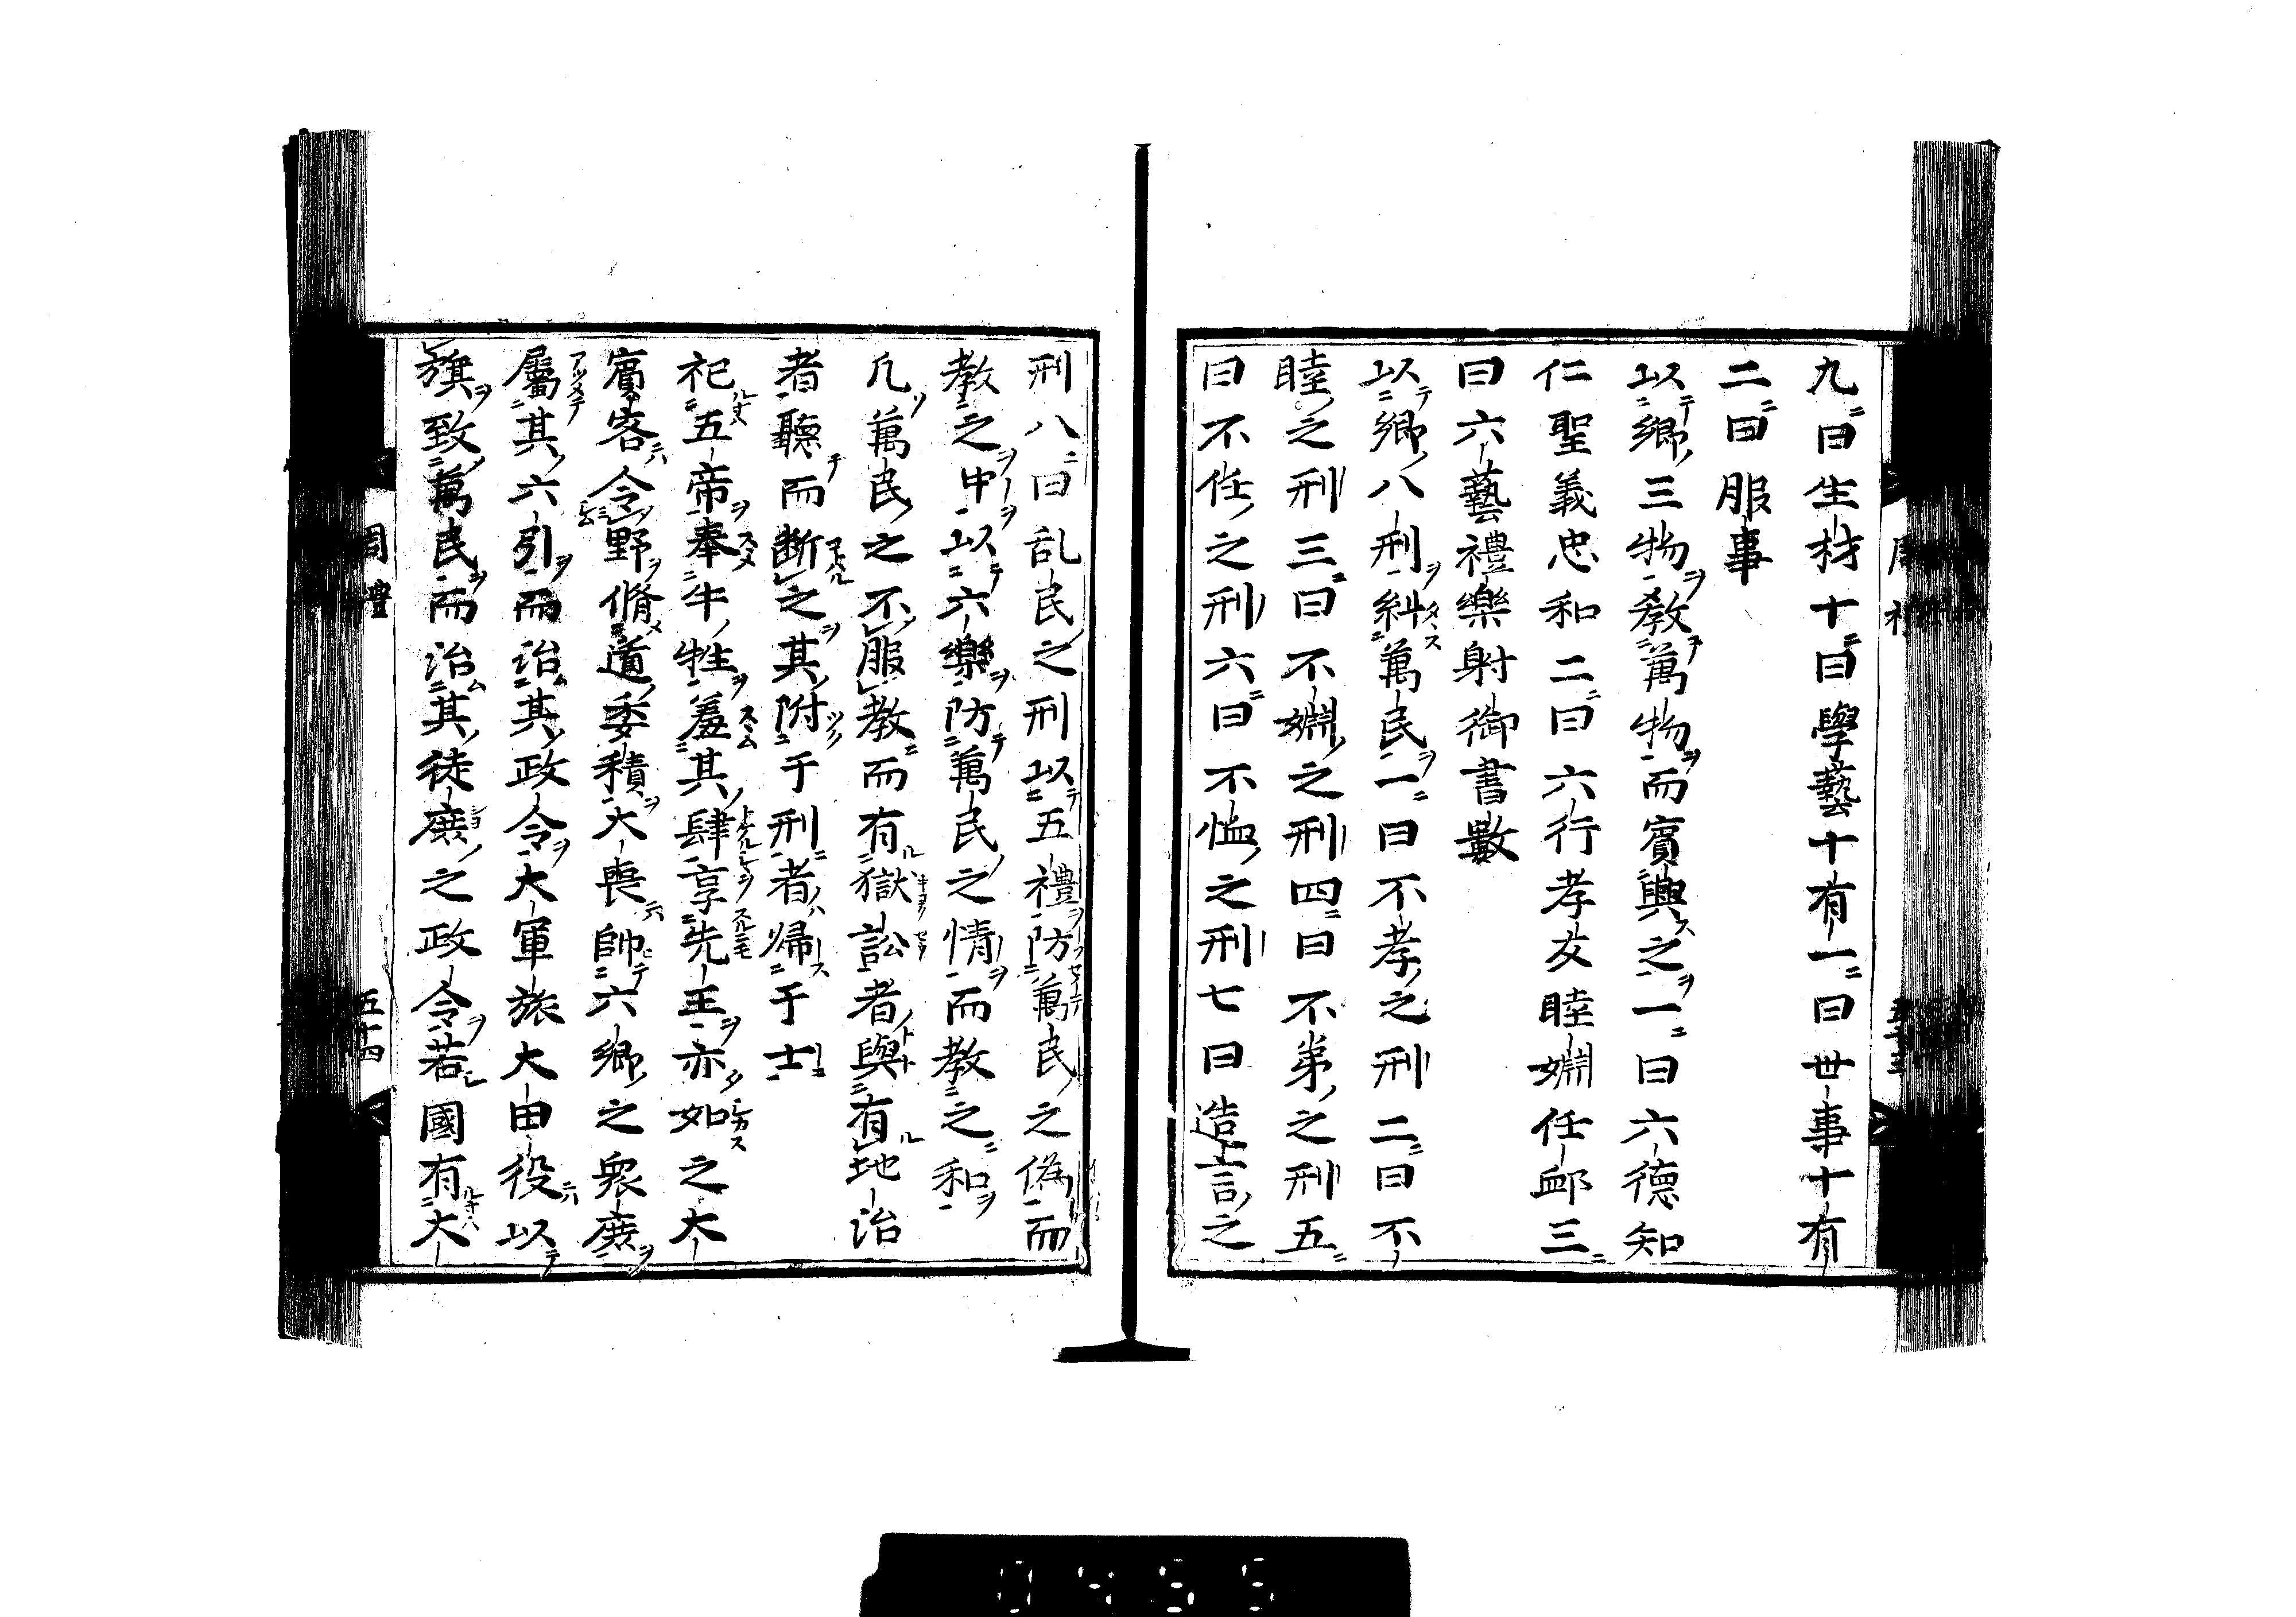 九曰生材十曰學藝十有一曰世事十有
二曰服事
以鄉三物敎萬物而賓興之一曰六德知
仁聖義忠和二曰六行孝友睦婣任䘏三
曰六藝禮樂射御書數
以鄉八刑糾萬民一曰不孝之刑二曰不
睦之刑三曰不婣之刑四曰不弟之刑五
曰不任之刑六曰不恤之刑七曰造言之
刑八曰乱民之刑以五禮防萬民之偽而
教之中以六樂防萬民之情而教之和
凡萬民之不服教而有獄訟者與有地治
者聽而断之其附于刑者歸于士
祀五帝奉牛牲羞其肆享先王亦如之大
賓客令野脩道委積大喪帥六鄉之衆庶
屬其六引而治其政令大軍旅大田役以
旗致萬民而治其徒庶之政令若國有大
周禮
五十四
0455